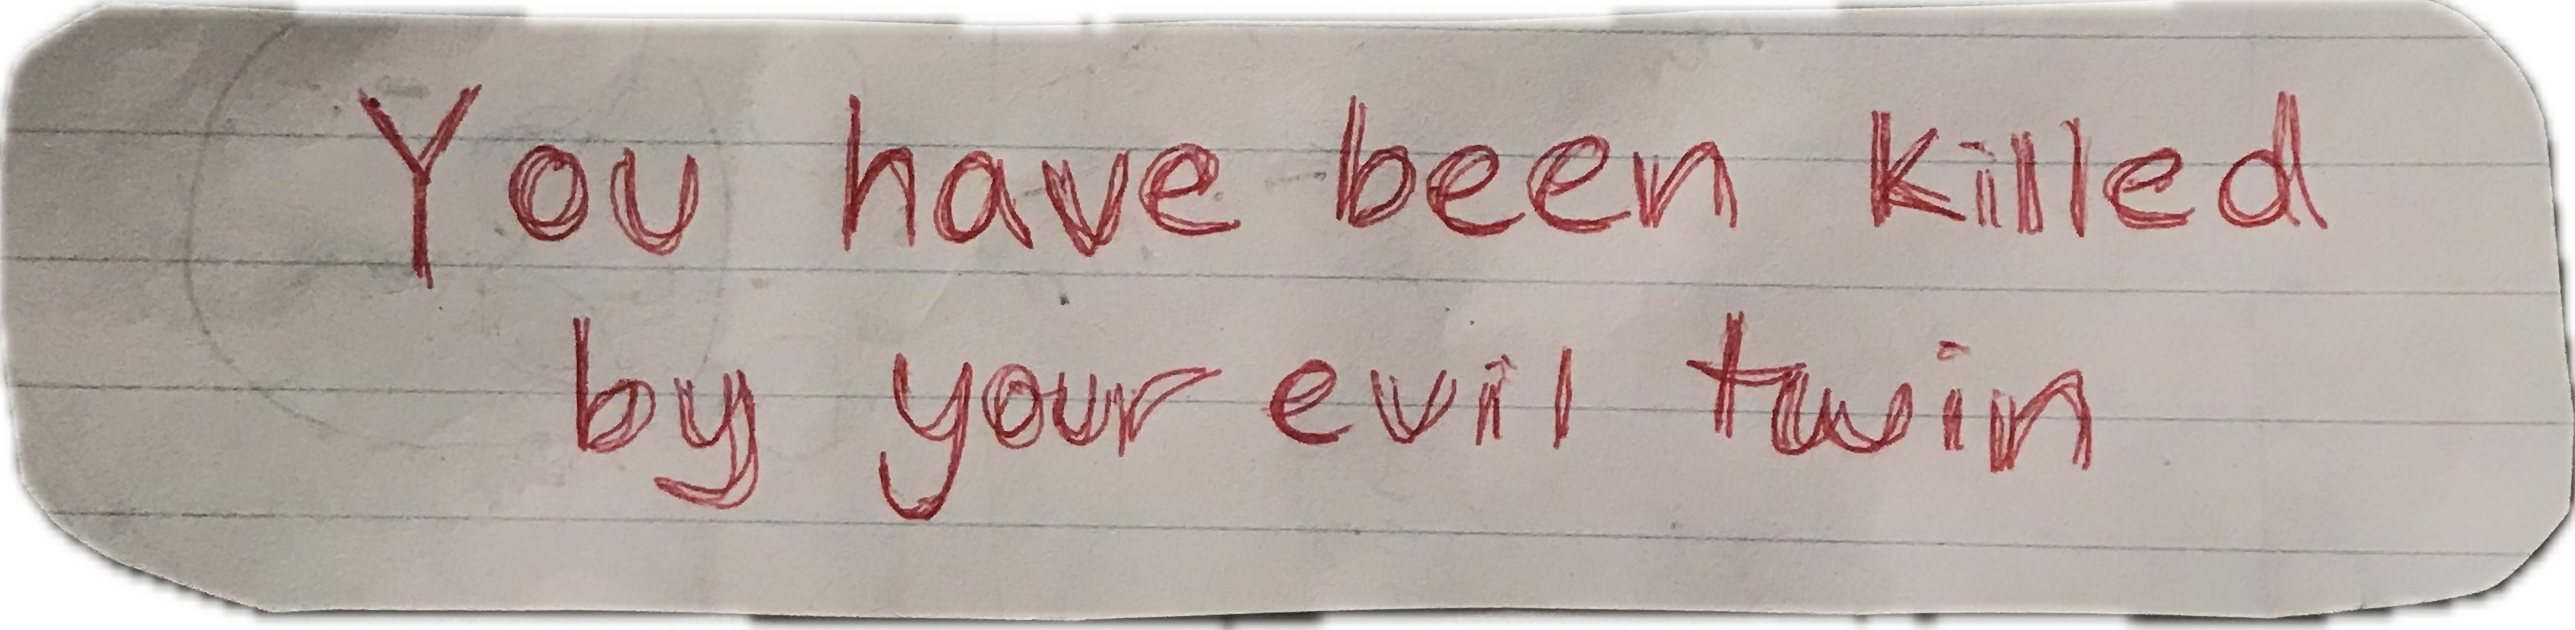 You have been killed
by your evil twin